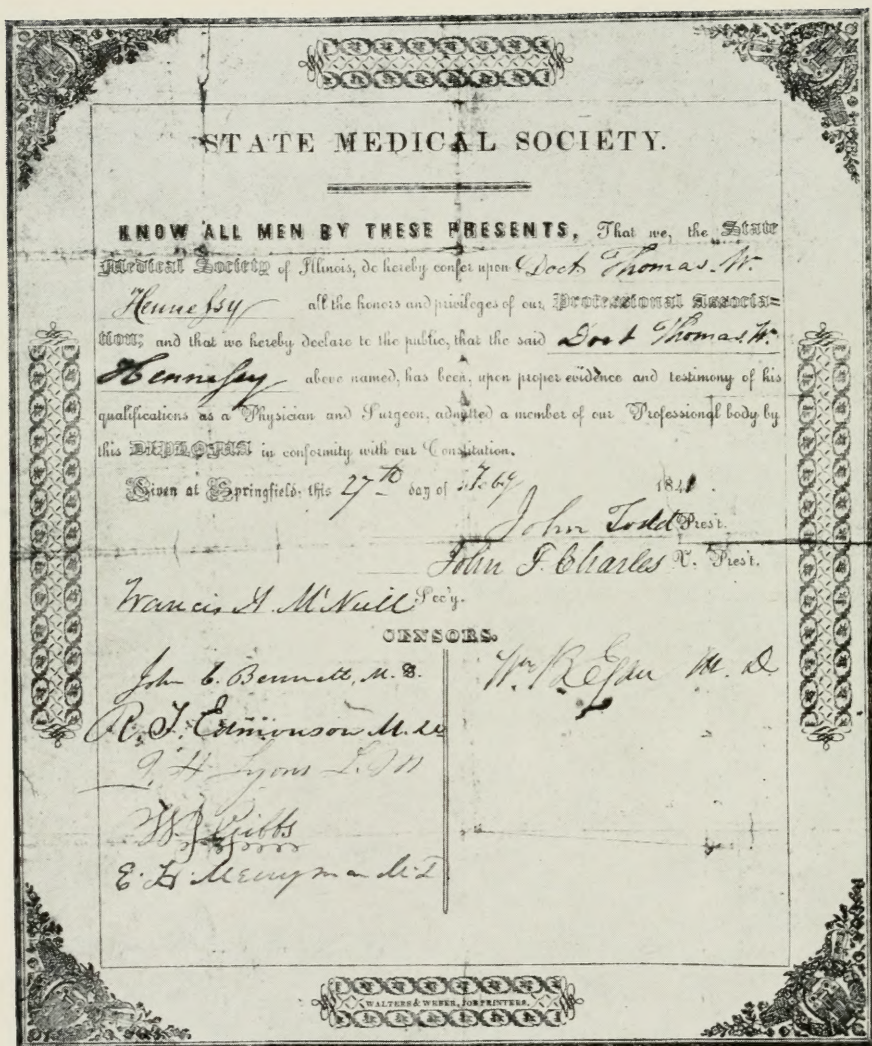 STATE MEDICAL SOCIETY.
KNOW ALL MEN BY THESE PRESENTS, That we, the State
Medical Society of Illinois, do hereby confer upon Doct Thomas. W.
Hennessy all the honors and privileges of our Professional Associa-
tion; and that we hereby declare to the public, that the said Doct Thomas. W.
Hennessy above named, has been, upon proper evidence and testimony of his
qualifications as a Physician and Surgeon, admitted a member of our Professional body by
this DIPLOMA in conformity with our Constitution.
Given at Springfield, this 27th day of Feby 1841.
John Todd Pres't.
John F. Charles V. Pres't.
Francis A. McNeill Sec'y.
CENSORS.
John C. Bennett, M. D.
Wm B Egan M. D
R. F. Edmonson M. D
H Lyons
W Gibbs
E. H. Merryman M. D
WALTERS & WEBER, JOB PRINTERS.